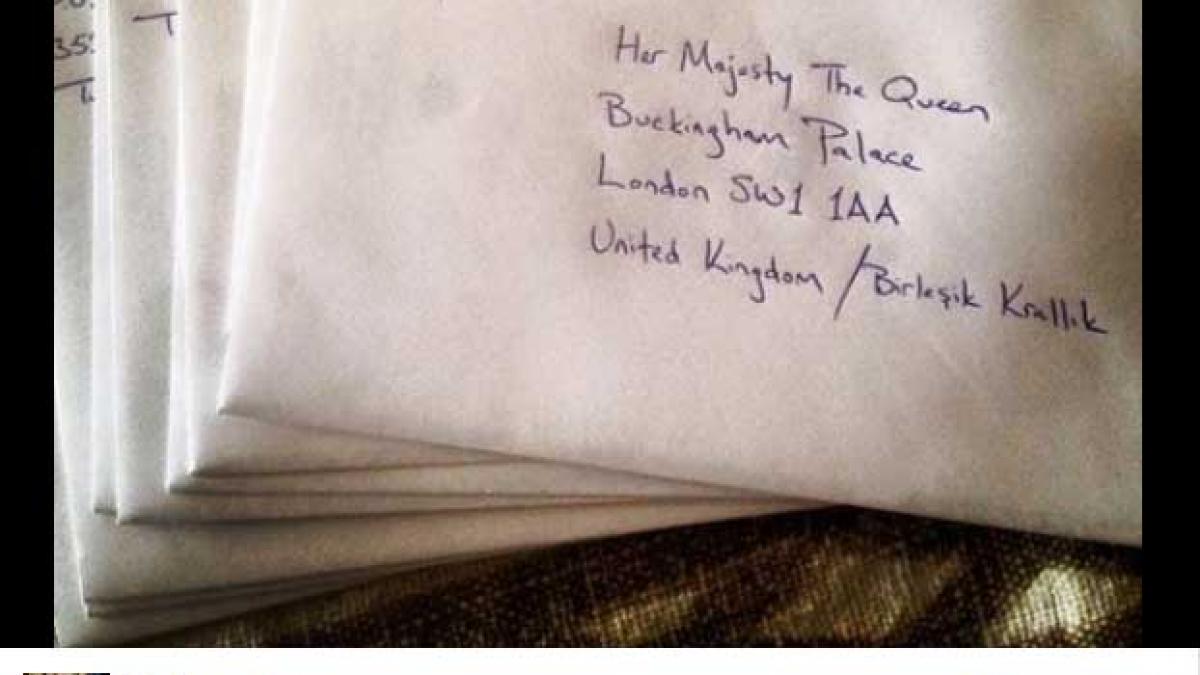 35
T
Her Majesty The Queen
Buckingham Palace
London SW1 1AA
United Kingdom / Birleşik Krallık